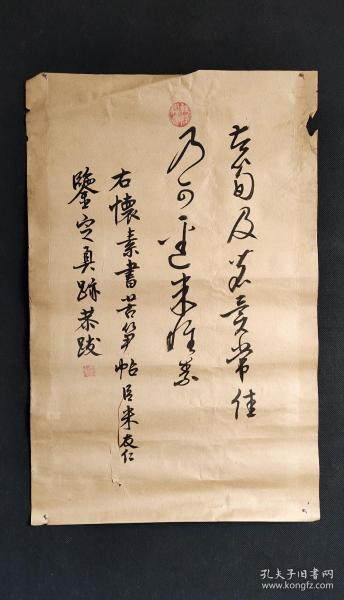 苦筍及茗異常佳
乃可逕來懷素
右懷素書苦筍帖臣米友仁
鑒定真跡恭跋
孔夫子旧书网
www.kongfz.com